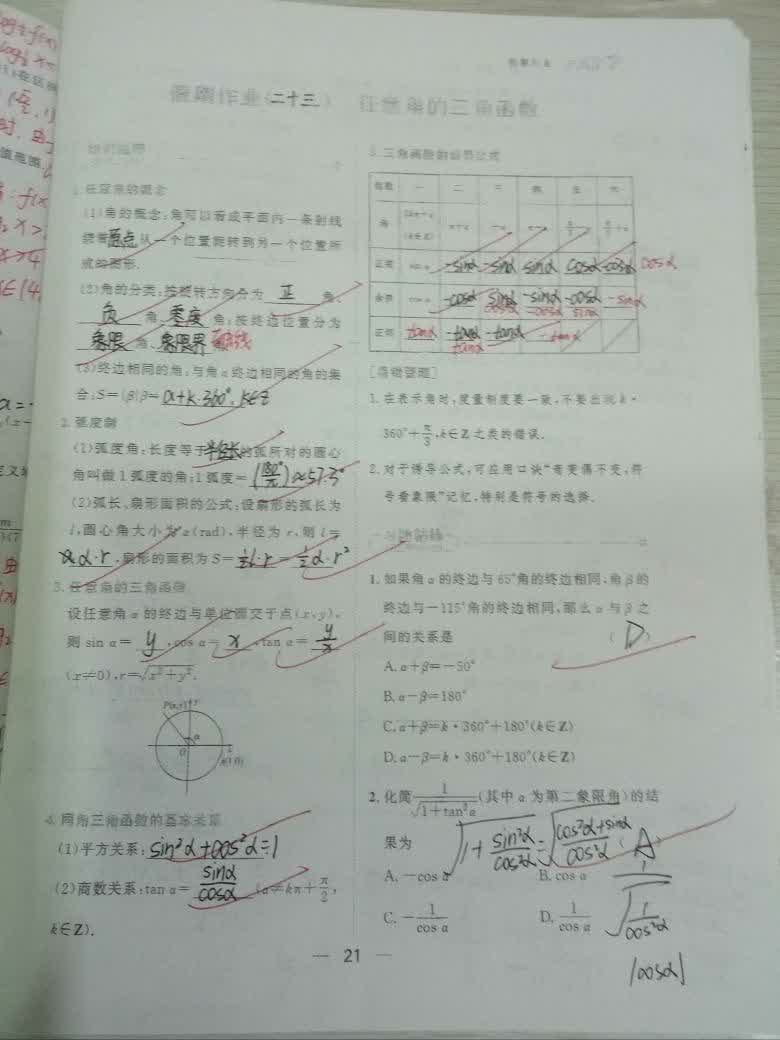 假期作业(二十三) 任意角的三角函数
知识梳理
1.任意角的概念
(1)角的概念:角可以看成平面内一条射线
绕着原点从一个位置旋转到另一个位置所
成的图形.
(2)角的分类:按旋转方向分为 正 角、
负 角、零度角;按终边位置分为
象限 角、象限界
(3)终边相同的角:与角α终边相同的角的集
合:S={β|β=α+k·360°,k∈Z
2.弧度制
(1)弧度角:长度等于半径长的弧所对的圆心
角叫做1弧度的角;1弧度=(180°/π)≈57.3°
(2)弧长、扇形面积的公式:设扇形的弧长为
l,圆心角大小为α(rad),半径为r,则l=
α·r,扇形的面积为S=½l·r=½α·r²
3.任意角的三角函数
设任意角α的终边与单位圆交于点(x,y),
则sin α= y ,cos α= x ,tan α= y/x
(x≠0),r=√(x²+y²).
P(x,y) y
α
O
A(1,0)
4.同角三角函数的基本关系
(1)平方关系:sin²α+cos²α=1
(2)商数关系:tan α= sinα/cosα (α≠kπ+π/2,
k∈Z).
5.三角函数的诱导公式
组数 一 二 三 四 五 六
角 2kπ+α (k∈Z) π+α -α π-α π/2-α π/2+α
正弦 sin α -sinα -sinα sinα cosα cosα cosα
余弦 cos α -cosα sinα -sinα -cosα -sinα
cosα -cosα sinα
正切 tanα -tanα -tanα -tanα
tanα
1.在表示角时,度量制度要一致,不要出现k·
360°+π/3,k∈Z之类的错误.
2.对于诱导公式,可应用口诀“奇变偶不变,符
号看象限”记忆,特别是符号的选择.
1.如果角α的终边与65°角的终边相同,角β的
终边与-115°角的终边相同,那么α与β之
间的关系是 ( D )
A.α+β=-50°
B.α-β=180°
C.α+β=k·360°+180°(k∈Z)
D.α-β=k·360°+180°(k∈Z)
2.化简1/√(1+tan²α)(其中α为第二象限角)的结
果为 √(1+sin²α/cos²α)=√((cos²α+sinα)/cos²α) ( A )
A.-cos α B.cos α
C.-1/cos α D.1/cos α
1/√(1/cos²α)
|cosα|
— 21 —